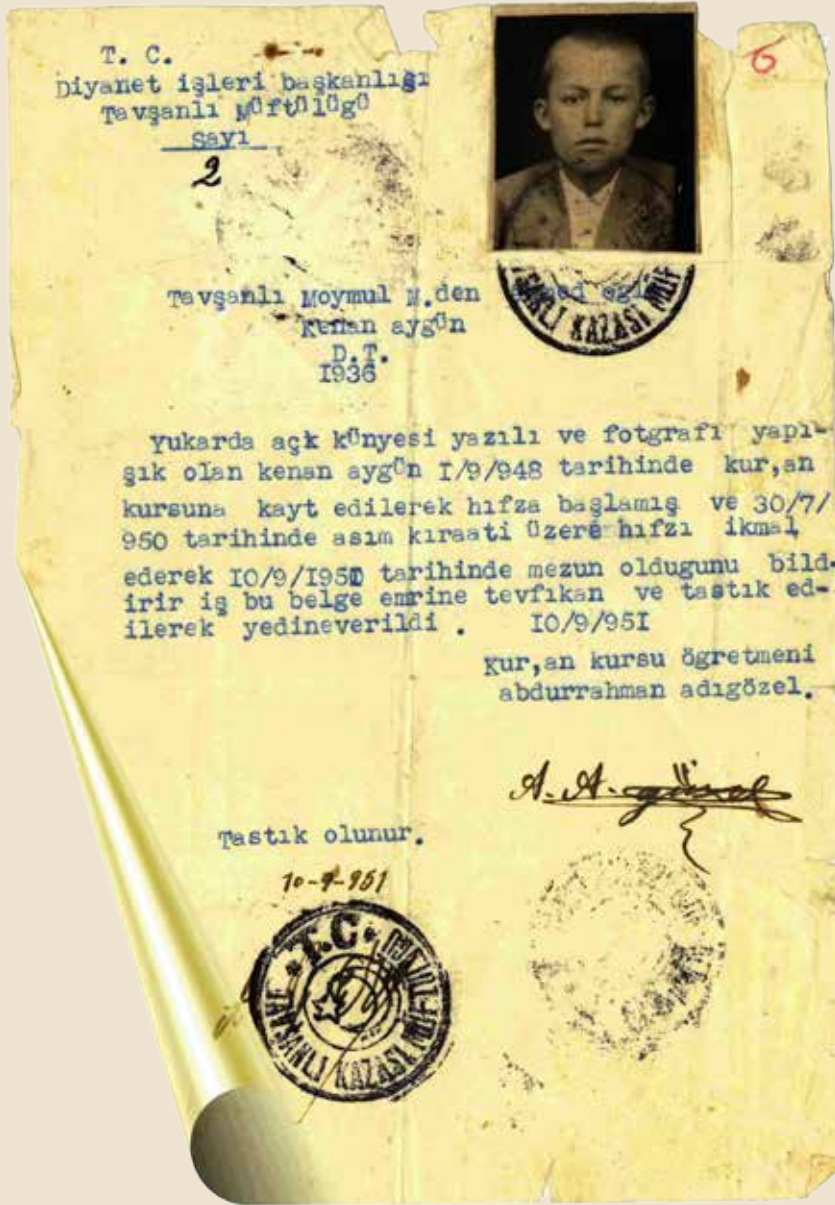 T. C.
Diyanet işleri başkanlığı
Tavşanlı Müftülügü
sayı
2
6
Tavşanlı Moymul M.den
kenan aygün
D.T.
I936
TAVŞANLI KAZASI MÜF
Yukarda açk künyesi yazılı ve fotgrafı yapı-
şık olan kenan aygün I/9/948 tarihinde kur,an
kursuna kayt edilerek hıfza başlamış ve 30/7/
950 tarihinde asım kıraati üzere hıfzı ikmal
ederek I0/9/I95 tarihinde mezun oldugunu bild-
irir iş bu belge emrine tevfikan ve tastik ed-
ilerek yedineverildi . I0/9/95I
Kur,an kursu ögretmeni
abdurrahman adıgözel.
A. A. güzel
Tastık olunur.
10-9-951
T.C
TAVŞANLI KAZASI MÜFTÜLÜĞÜ